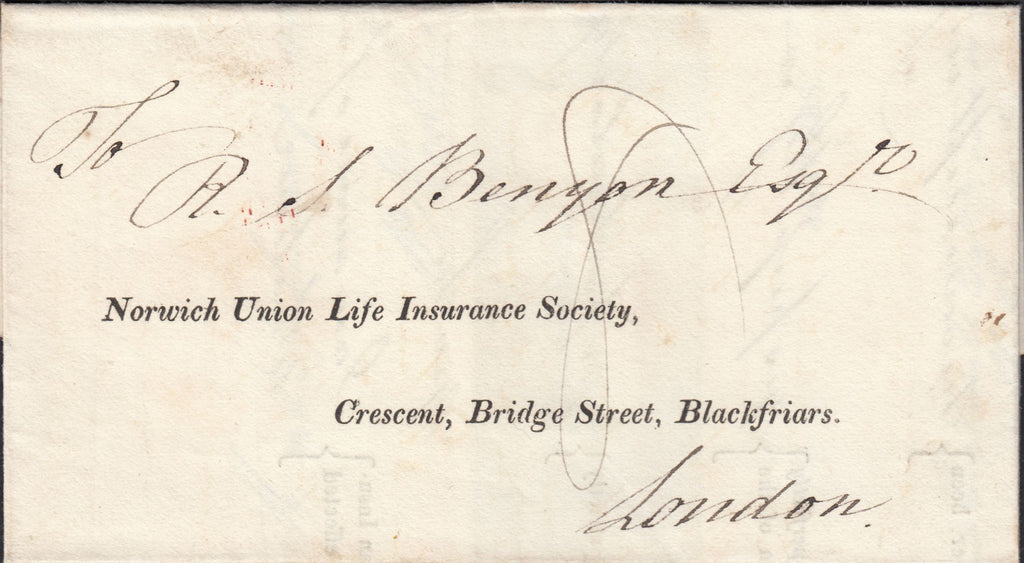 To
R. S. Benyon Esqre
Norwich Union Life Insurance Society,
Crescent, Bridge Street, Blackfriars.
London.
8